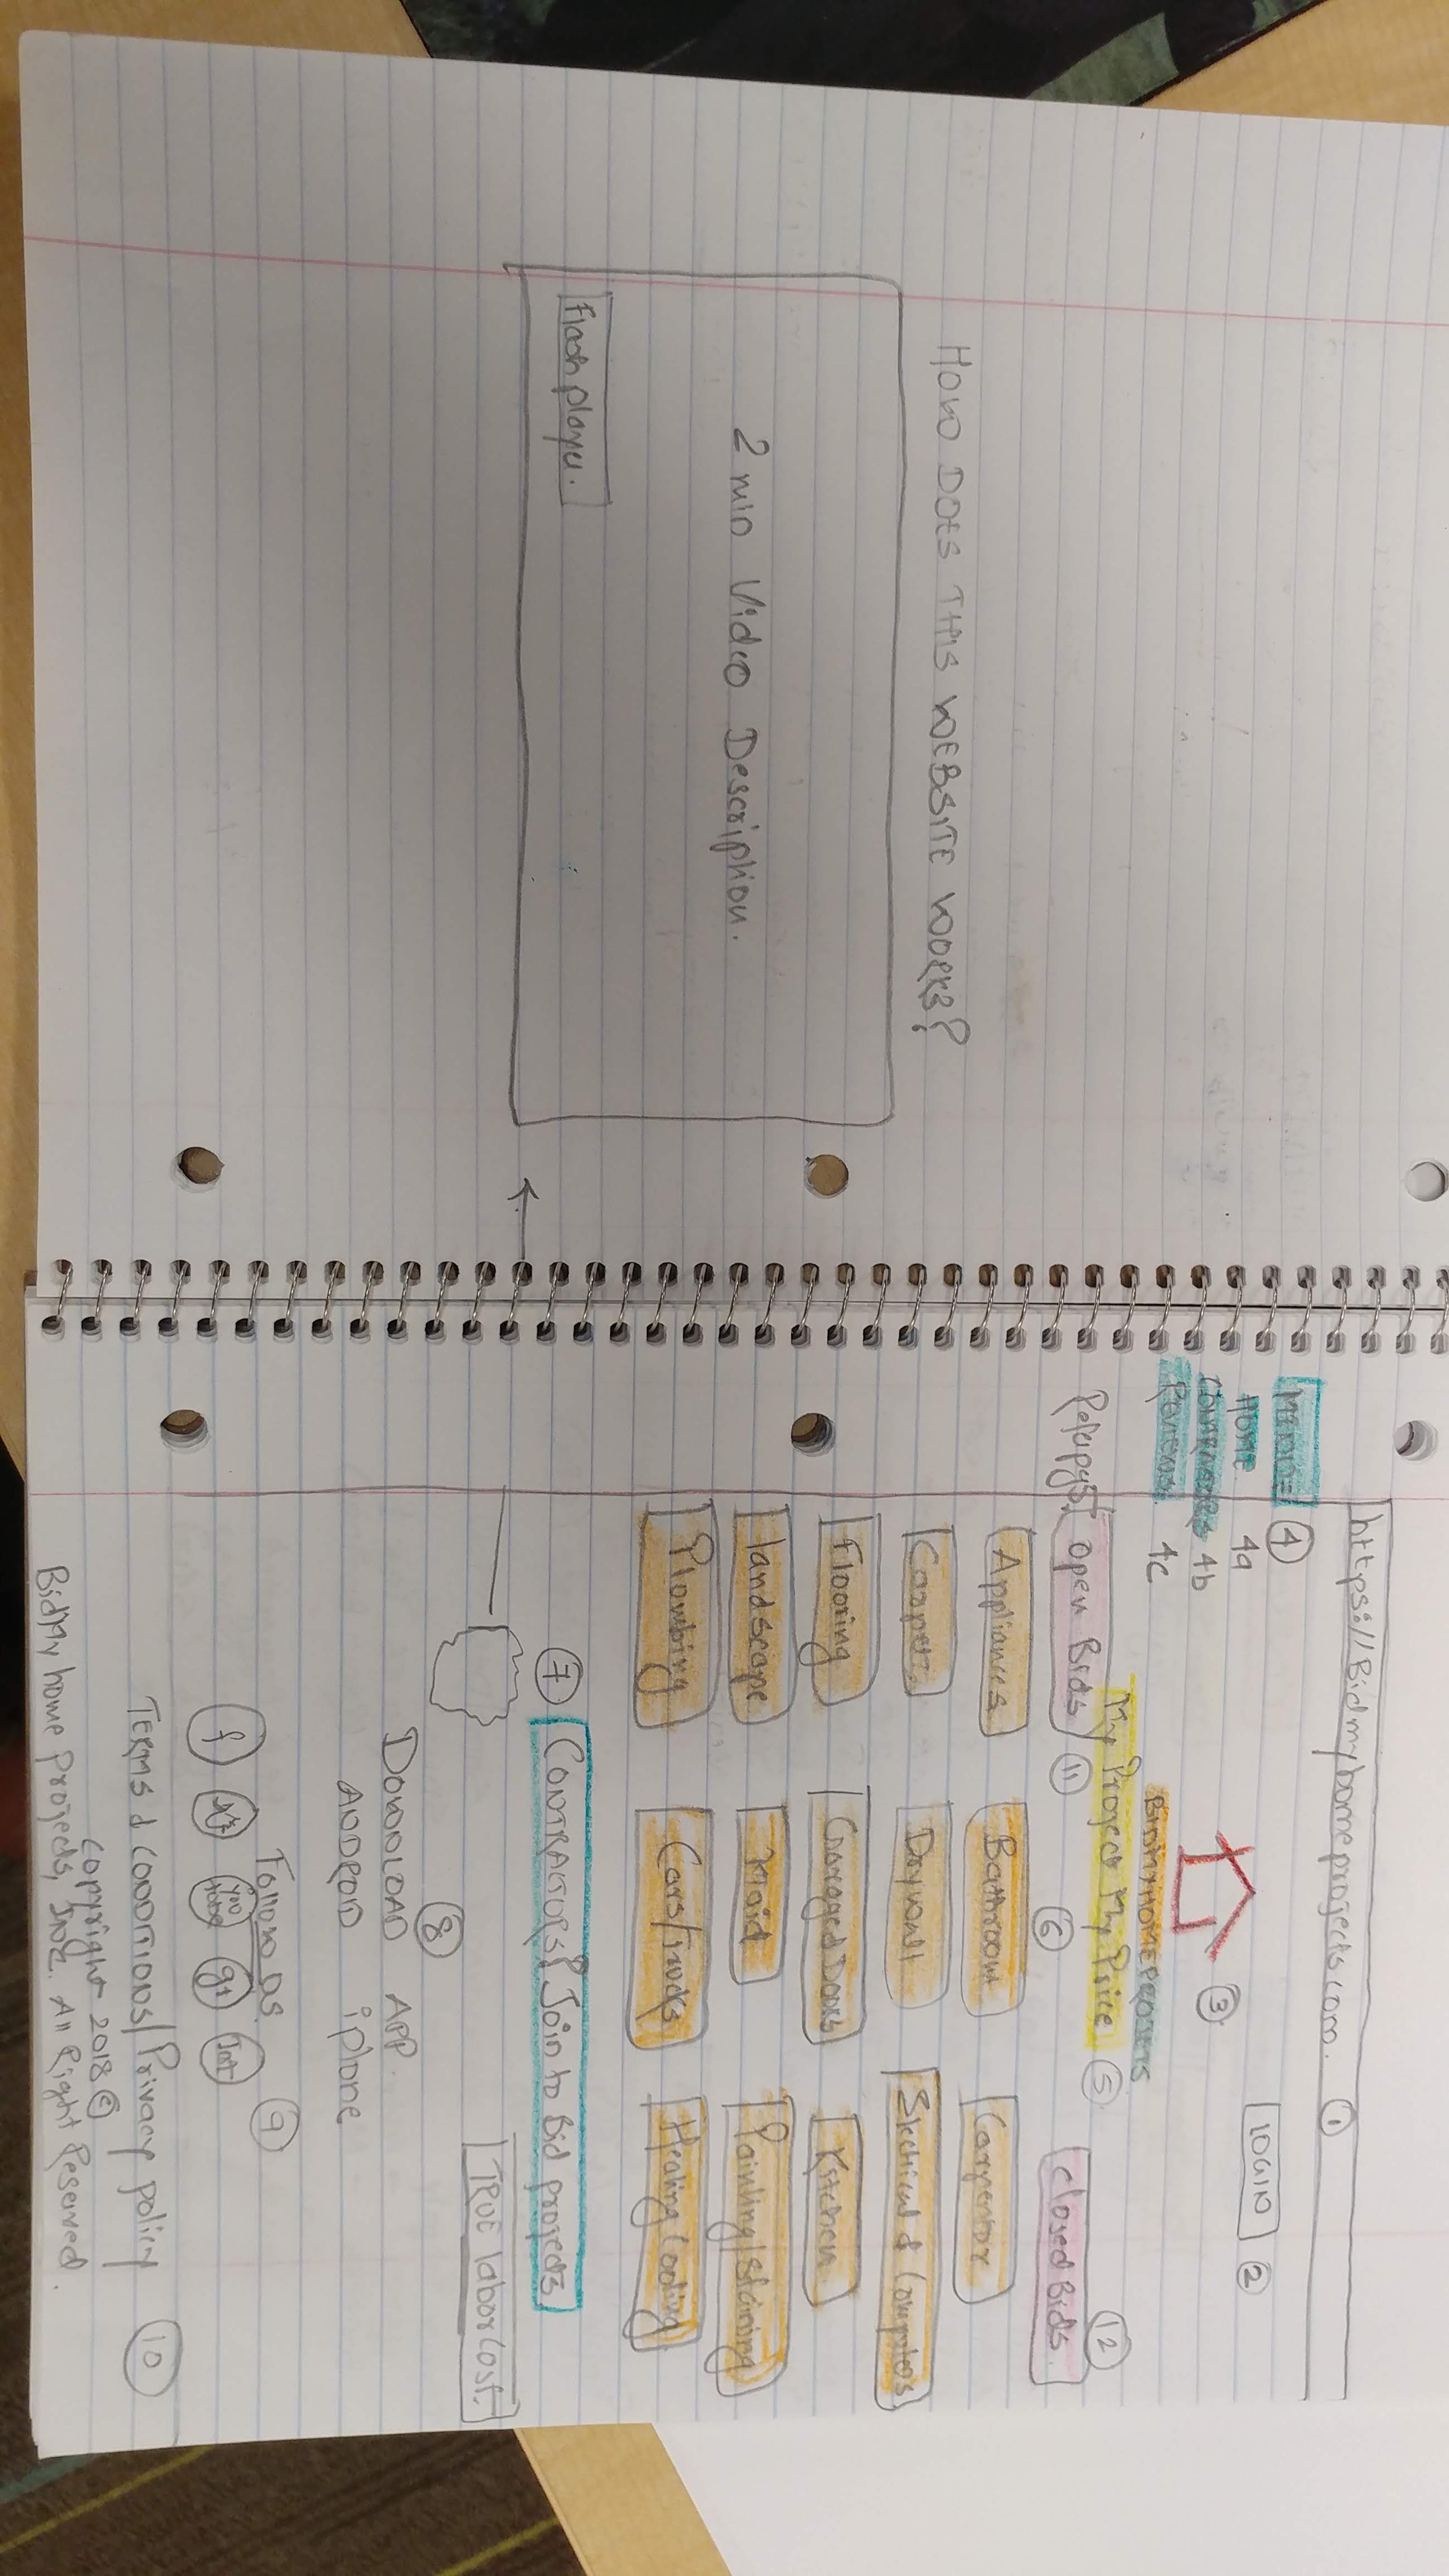 HOW DOES THIS WEBSITE WORKS?
2 min Video Description.
Flash player.
https://Bidmyhomeprojects.com. 1
MENU= 4
LOGIN 2
HOME 4a
3
CONTRACTORS 4b
REVIEWS 4c
BIDMYHOMEPROJETS
My Project My Price 5
12
Open Bids 11
6
Closed Bids.
Appliances Bathroom Carpentor
Carpet Drywall Electrical & Computers
Flooring Garaged Doors Kitchen
landscape Maid Painting/Staining
Plumbing Cars/Trucks Heating Cooling
7 CONTRACTORS? Join to Bid projects
TRUE labor Cost.
8
DOWNLOAD APP.
ANDROID iphone
Follow US 9
f You tube g+ Int
TERMS & CONDITIONS/Privacy policy 10
Copyright 2018 ©
BidMy home Projects, Inc. All Right Reserved.